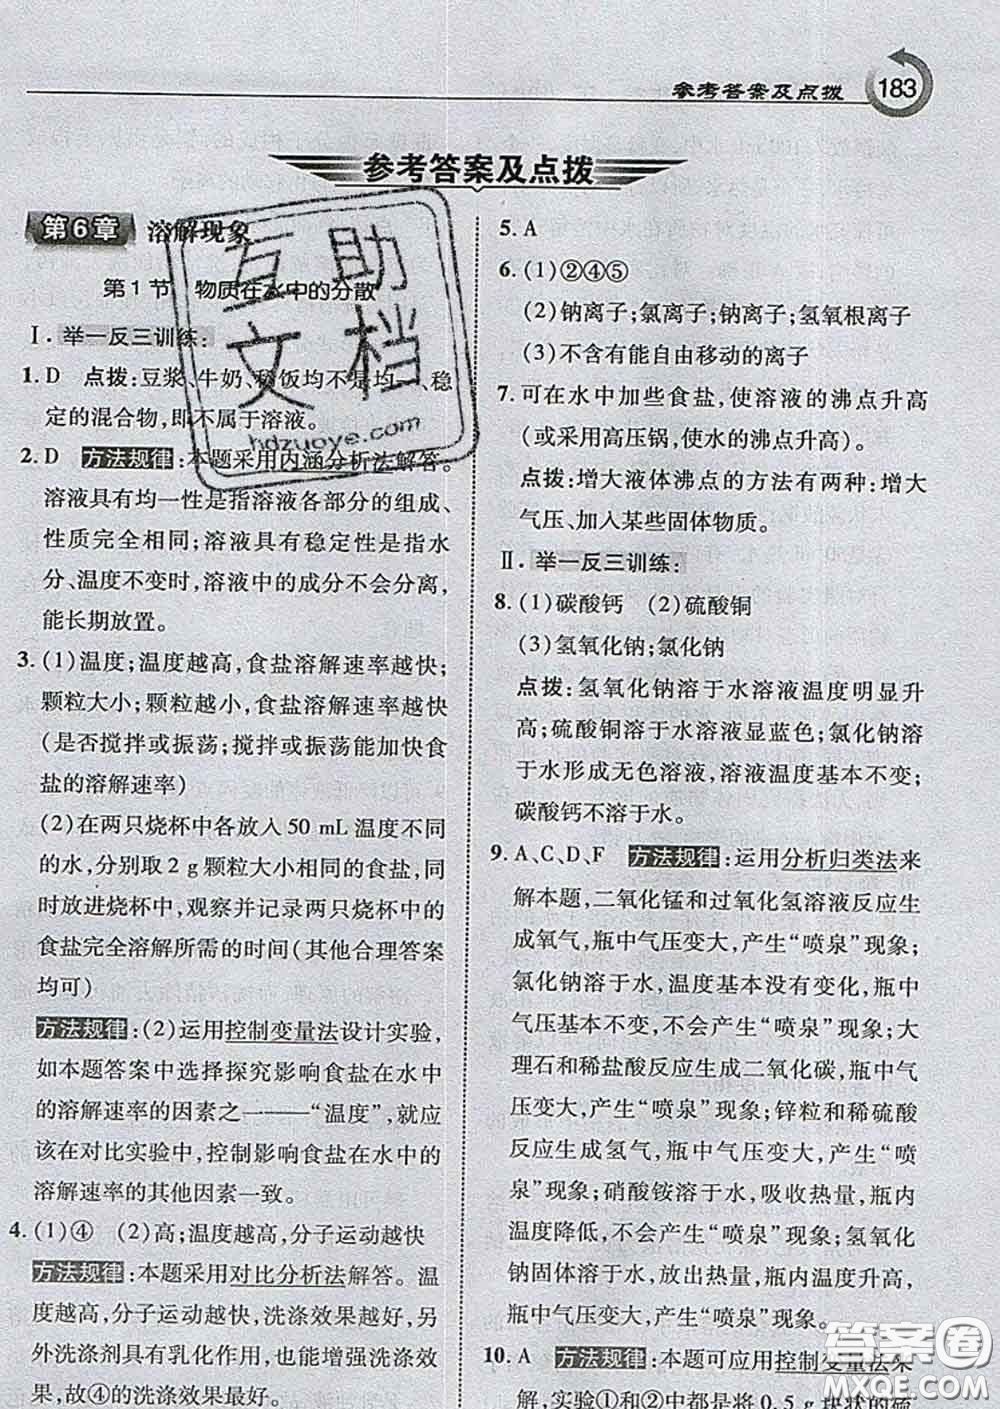 参考答案及点拨
183
参考答案及点拨
第6章 溶解现象
第1节 物质在水中的分散
Ⅰ. 举一反三训练:
1. D 点拨:豆浆、牛奶、稀饭均不是均一、稳
定的混合物,即不属于溶液。
2. D 方法规律:本题采用内涵分析法解答。
溶液具有均一性是指溶液各部分的组成、
性质完全相同;溶液具有稳定性是指水
分、温度不变时,溶液中的成分不会分离,
能长期放置。
3. (1)温度;温度越高,食盐溶解速率越快;
颗粒大小;颗粒越小,食盐溶解速率越快
(是否搅拌或振荡;搅拌或振荡能加快食
盐的溶解速率)
(2)在两只烧杯中各放入50 mL温度不同
的水,分别取2 g颗粒大小相同的食盐,同
时放进烧杯中,观察并记录两只烧杯中的
食盐完全溶解所需的时间(其他合理答案
均可)
方法规律:(2)运用控制变量法设计实验,
如本题答案中选择探究影响食盐在水中
的溶解速率的因素之一——“温度”,就应
该在对比实验中,控制影响食盐在水中的
溶解速率的其他因素一致。
4. (1)④ (2)高;温度越高,分子运动越快
方法规律:本题采用对比分析法解答。温
度越高,分子运动越快,洗涤效果越好,另
外洗涤剂具有乳化作用,也能增强洗涤效
果,故④的洗涤效果最好。
5. A
6. (1)②④⑤
(2)钠离子;氯离子;钠离子;氢氧根离子
(3)不含有能自由移动的离子
7. 可在水中加些食盐,使溶液的沸点升高
(或采用高压锅,使水的沸点升高)。
点拨:增大液体沸点的方法有两种:增大
气压、加入某些固体物质。
Ⅱ. 举一反三训练:
8. (1)碳酸钙 (2)硫酸铜
(3)氢氧化钠;氯化钠
点拨:氢氧化钠溶于水溶液温度明显升
高;硫酸铜溶于水溶液显蓝色;氯化钠溶
于水形成无色溶液,溶液温度基本不变;
碳酸钙不溶于水。
9. A、C、D、F 方法规律:运用分析归类法来
解本题,二氧化锰和过氧化氢溶液反应生
成氧气,瓶中气压变大,产生“喷泉”现象;
氯化钠溶于水,温度基本没有变化,瓶中
气压基本不变,不会产生“喷泉”现象;大
理石和稀盐酸反应生成二氧化碳,瓶中气
压变大,产生“喷泉”现象;锌粒和稀硫酸
反应生成氢气,瓶中气压变大,产生“喷
泉”现象;硝酸铵溶于水,吸收热量,瓶内
温度降低,不会产生“喷泉”现象;氢氧化
钠固体溶于水,放出热量,瓶内温度升高,
瓶中气压变大,产生“喷泉”现象。
10. A 方法规律:本题可应用控制变量法来
解,实验①和②中都是将0.5 g块状的硫
互助
文档
hdzuoye.com
答案圈
MXQE.COM